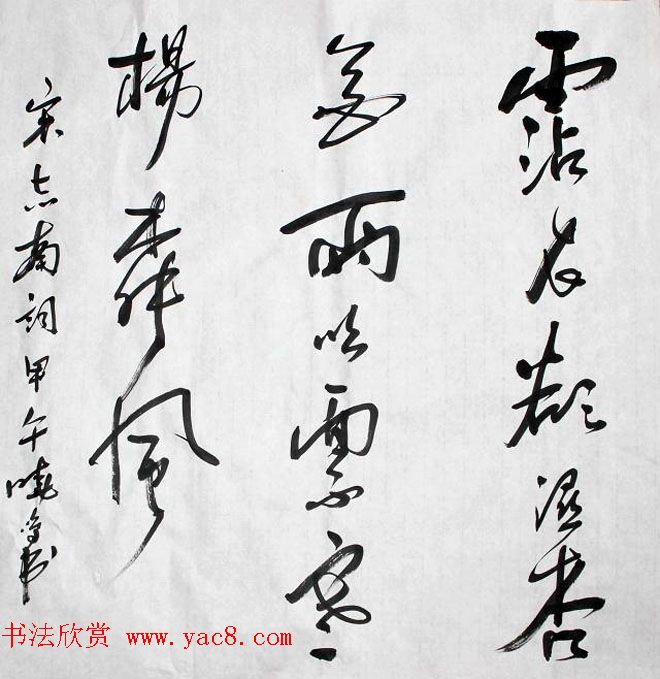 霑衣欲濕杏
花雨吹面不寒
楊柳風
宋志南詞甲午曉书
书法欣赏 www.yac8.com